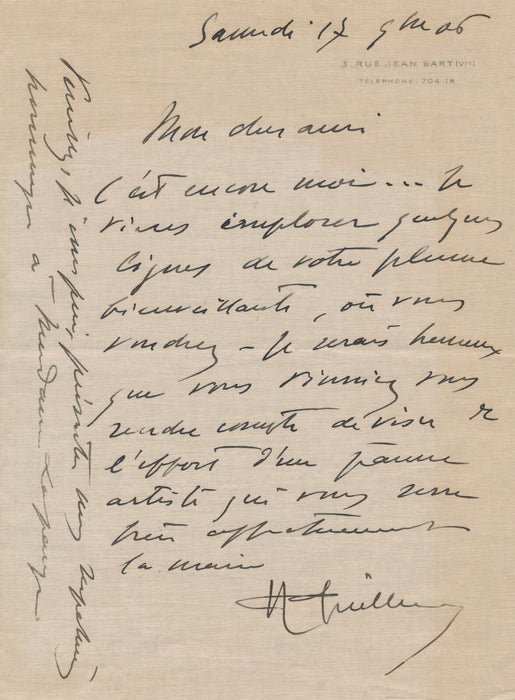 Samedi 17 9bre 06
3, RUE JEAN BART (VIe)
TÉLÉPHONE: 704.18
Mon cher ami
C'est encore moi... Je
viens implorer quelques
lignes de votre plume
bienveillante, où vous
voudrez – Je serais heureux
que vous vinssiez vous
rendre compte de visu de
l'effort d'un pauvre
artiste qui vous serre
très affectueusement
la main
Veuillez, je vous prie, présenter mes respectueux
hommages à Madame